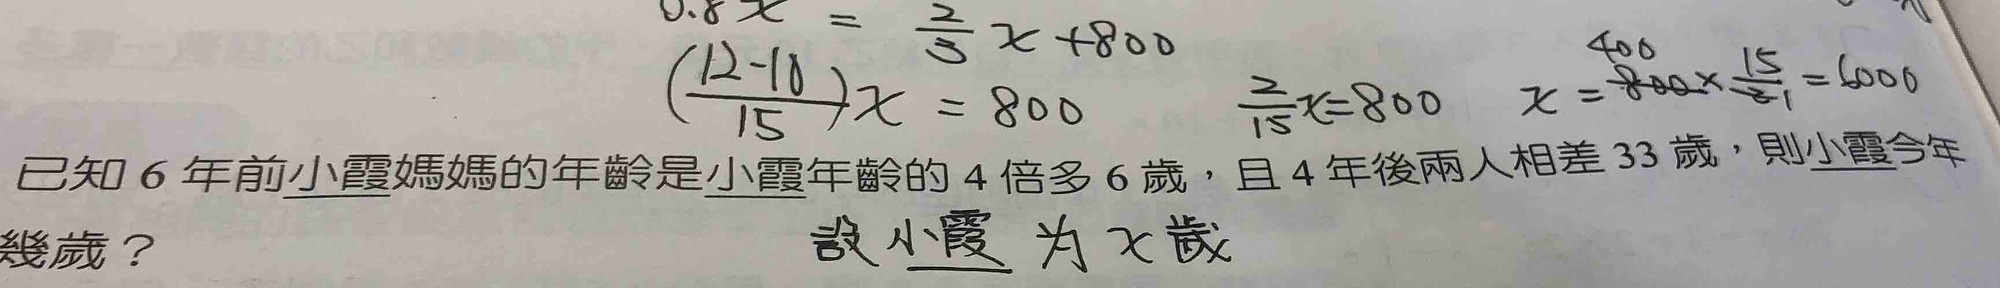 0.8x = 2/3 x + 800
((12-10)/15)x = 800  2/15 x = 800  x = 800 × 15/2 = 6000
400 1
已知 6 年前小霞媽媽的年齡是小霞年齡的 4 倍多 6 歲，且 4 年後兩人相差 33 歲，則小霞今年
幾歲？
設小霞为 x 歲